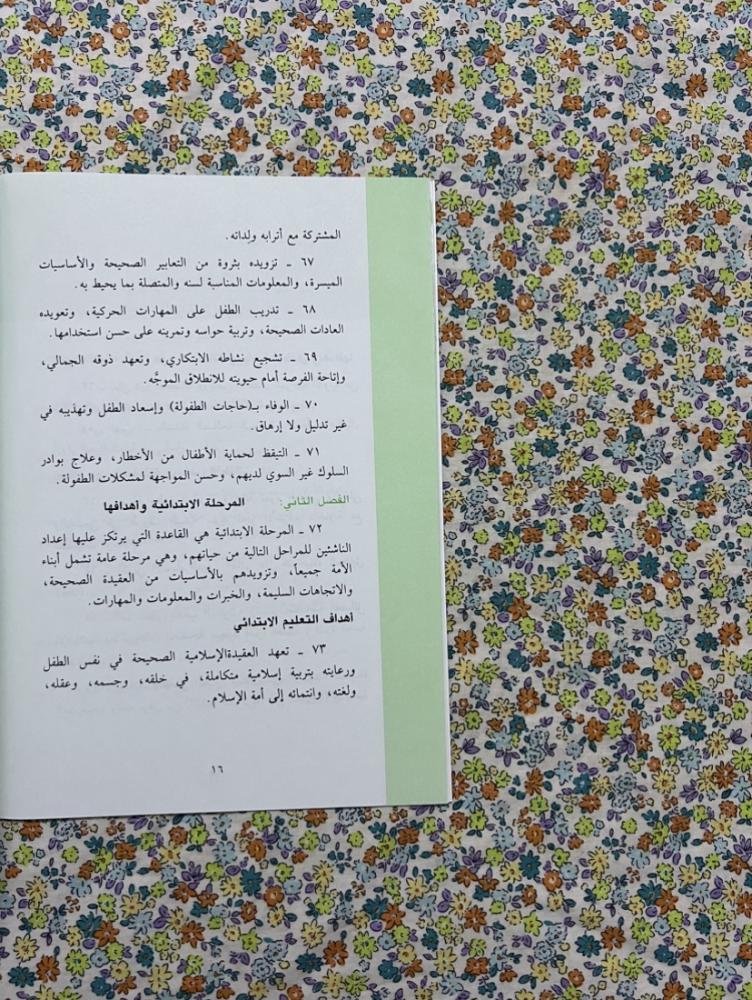 المشتركة مع أترابه ولداته.
٦٧ ـ تزويده بثروة من التعابير الصحيحة والأساسيات
الميسرة، والمعلومات المناسبة لسنه والمتصلة بما يحيط به.
٦٨ ـ تدريب الطفل على المهارات الحركية، وتعويده
العادات الصحيحة، وتربية حواسه وتمرينه على حسن استخدامها.
٦٩ ـ تشجيع نشاطه الابتكاري، وتعهد ذوقه الجمالي،
وإتاحة الفرصة أمام حيويته للانطلاق الموجَّه.
٧٠ ـ الوفاء بـ(حاجات الطفولة) وإسعاد الطفل وتهذيبه في
غير تدليل ولا إرهاق.
٧١ ـ التيقظ لحماية الأطفال من الأخطار، وعلاج بوادر
السلوك غير السوي لديهم، وحسن المواجهة لمشكلات الطفولة.
الفصل الثاني: المرحلة الابتدائية وأهدافها
٧٢ ـ المرحلة الابتدائية هي القاعدة التي يرتكز عليها إعداد
الناشئين للمراحل التالية من حياتهم، وهي مرحلة عامة تشمل أبناء
الأمة جميعاً، وتزويدهم بالأساسيات من العقيدة الصحيحة،
والاتجاهات السليمة، والخبرات والمعلومات والمهارات.
أهداف التعليم الابتدائي
٧٣ ـ تعهد العقيدةالإسلامية الصحيحة في نفس الطفل
ورعايته بتربية إسلامية متكاملة، في خلقه، وجسمه، وعقله،
ولغته، وانتمائه إلى أمة الإسلام.
١٦